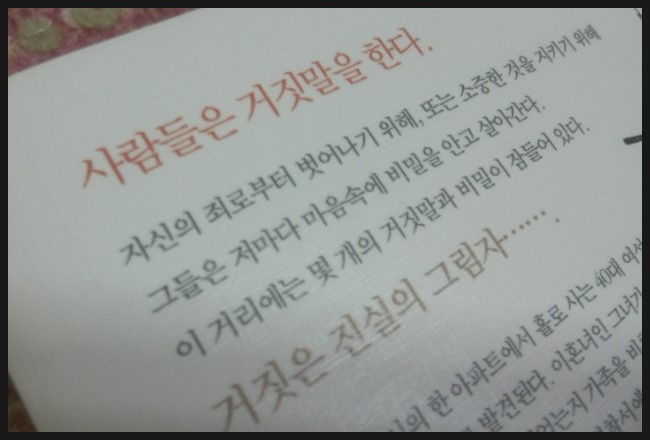 사람들은 거짓말을 한다.
자신의 죄로부터 벗어나기 위해, 또는 소중한 것을 지키기 위해
그들은 저마다 마음속에 비밀을 안고 살아간다.
이 거리에는 몇 개의 거짓말과 비밀이 잠들어 있다.
거짓은 진실의 그림자…….
한 아파트에서 홀로 사는 40대 여성
발견된다. 이혼녀인 그녀가
가족을